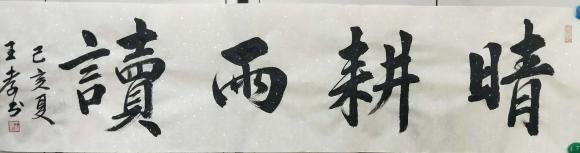 晴耕雨讀
己亥夏
王孝书